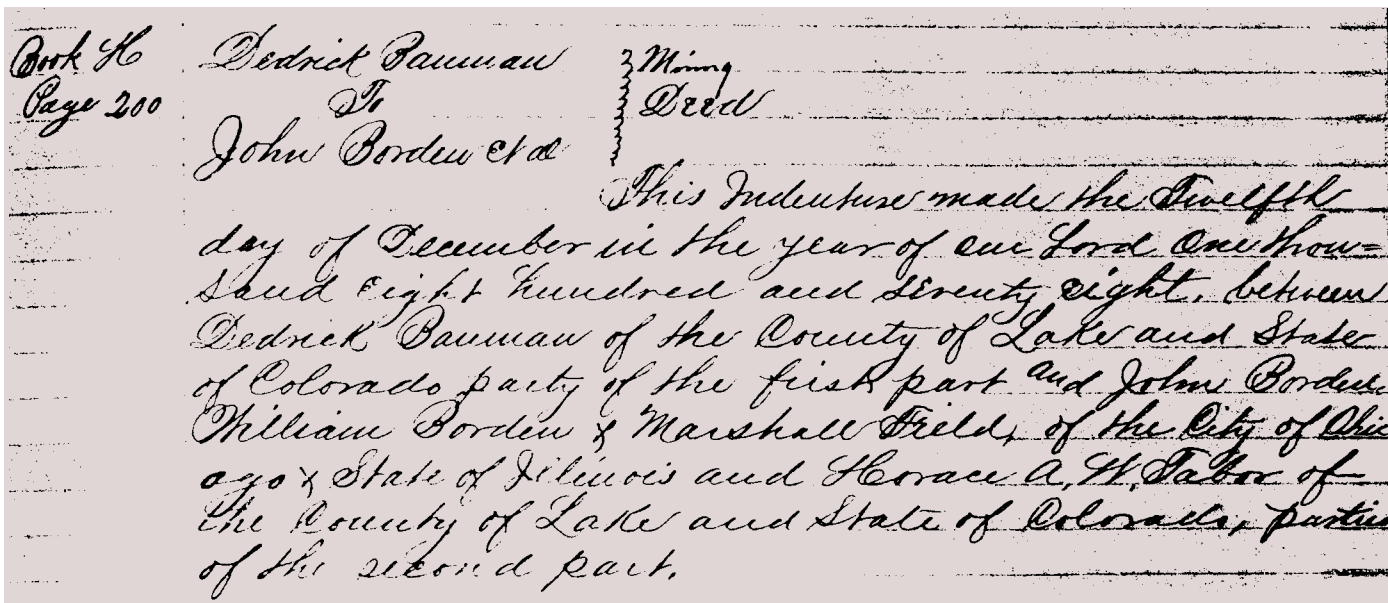 Book H
Page 200
Dedrick Bauman
To
John Borden et al
Mining
Deed
This Indenture made the Twelfth
day of December in the year of our Lord One thou=
sand eight hundred and seventy eight, between
Dedrick Bauman of the County of Lake and State
of Colorado party of the first part and John Borden,
William Borden & Marshall Field, of the City of Chic
ago & State of Illinois and Horace A. W. Tabor of
the County of Lake and State of Colorado, parties
of the second part.